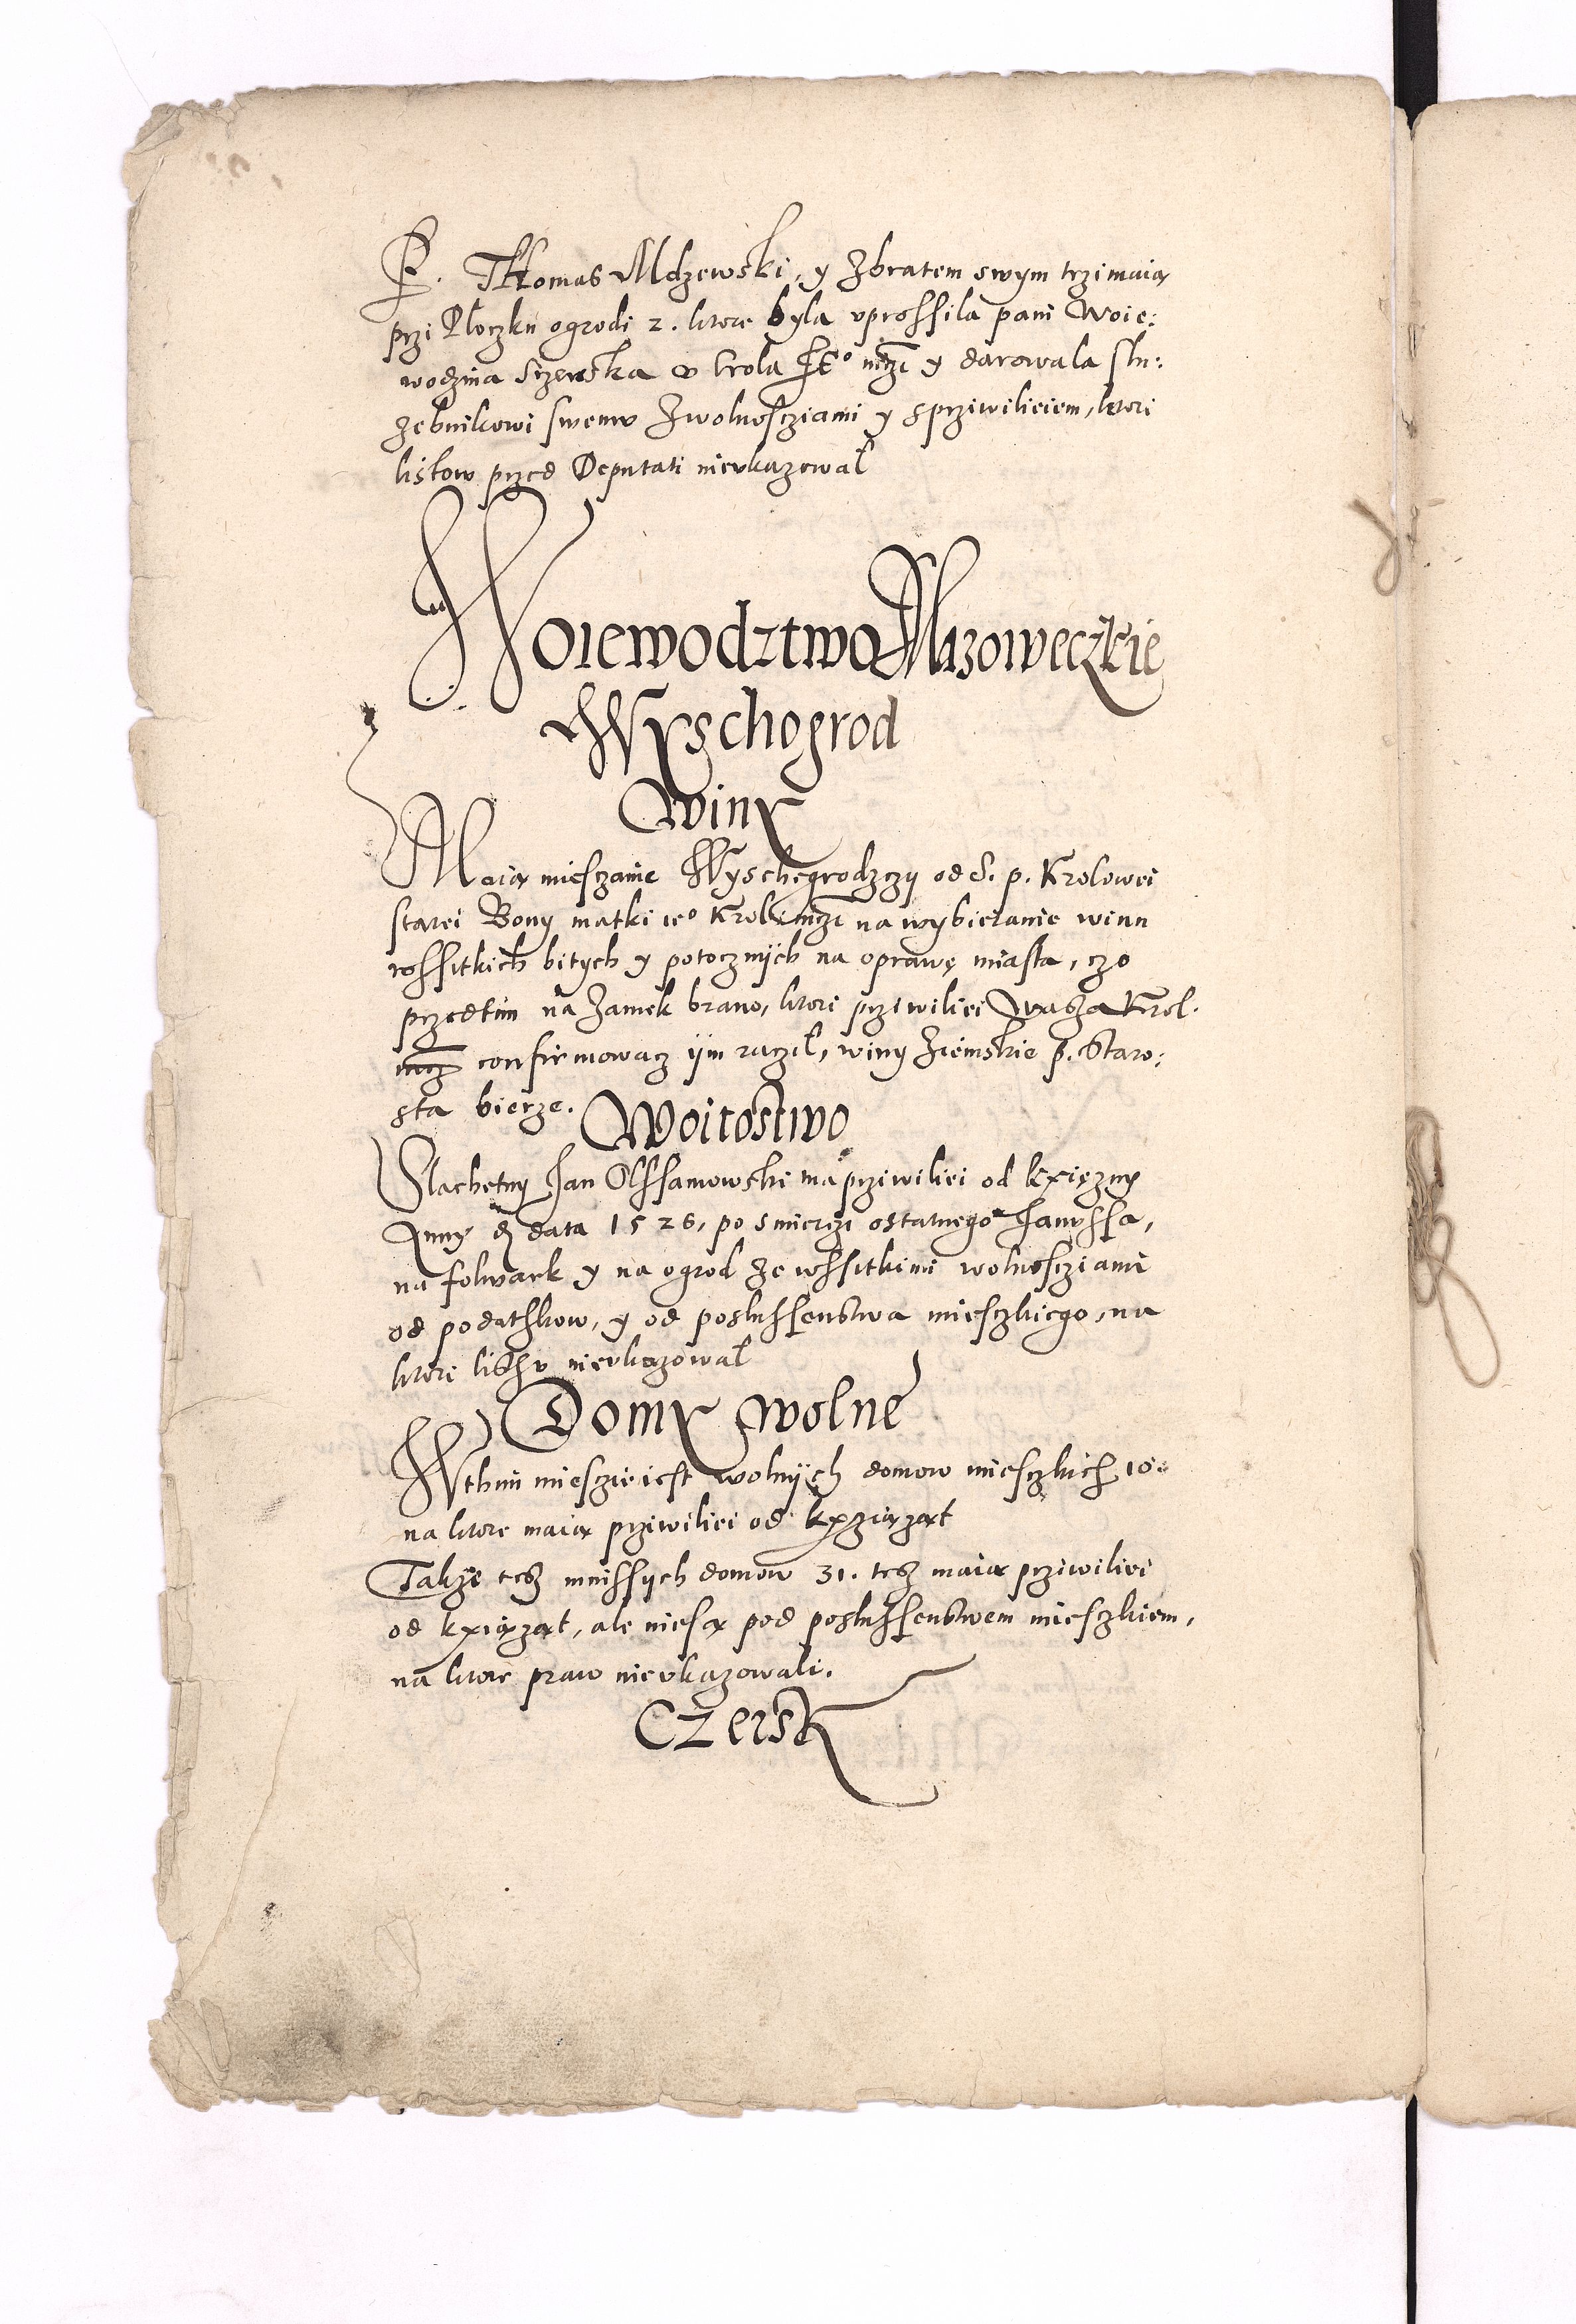 P. Thomas Mdzewski, y zbratem swym trzimaią
przi Ploczku ogrodi 2. ktore byla uprossila pani Woie:
wodzina u krola Je° mczi y darowala slu:
zebnikowi swemu zwolnosczciami y sprziwilieiem, ktori
listow przed Deputati nieukazowal
Woiewodztwo Mazoweczkie
Wyschogrod
Winy
Maią miesczanie Wyschogrodzczy od S. p. Krolowei
starei Bony matki ie° Krol: mczi na wybieranie winn
wssitkich bitych y potocznych na oprawę miasta, czo
przedtim na Zamek brano, ktori prziwiliei Wasza Krol.
mcz confirmowacz ijm raczil, winy Ziemskie p. Staro:
sta bierze.
Woitostwo
Slachetny Jan Olssamowski ma prziwiliei od kxięzny
Anny data 1526, po smierczi ostatnego Janussa,
na folwark y na ogrod ze wssitkimi wolnosciami
od podathkow, y od poslussenstwa miesczkiego, na
ktori listhu nieukazowal
Domy wolne
Wthim miesczie iest wolnych domow miesczkich 10.
na ktore maią prziwiliei od kxziąząt
Takze tesz mnissych domow 31. tesz maią prziwiliei
od kxiąząt, ale niesą pod poslussenstwem miesczkiem,
na ktore praw nieukazowali.
Czersk